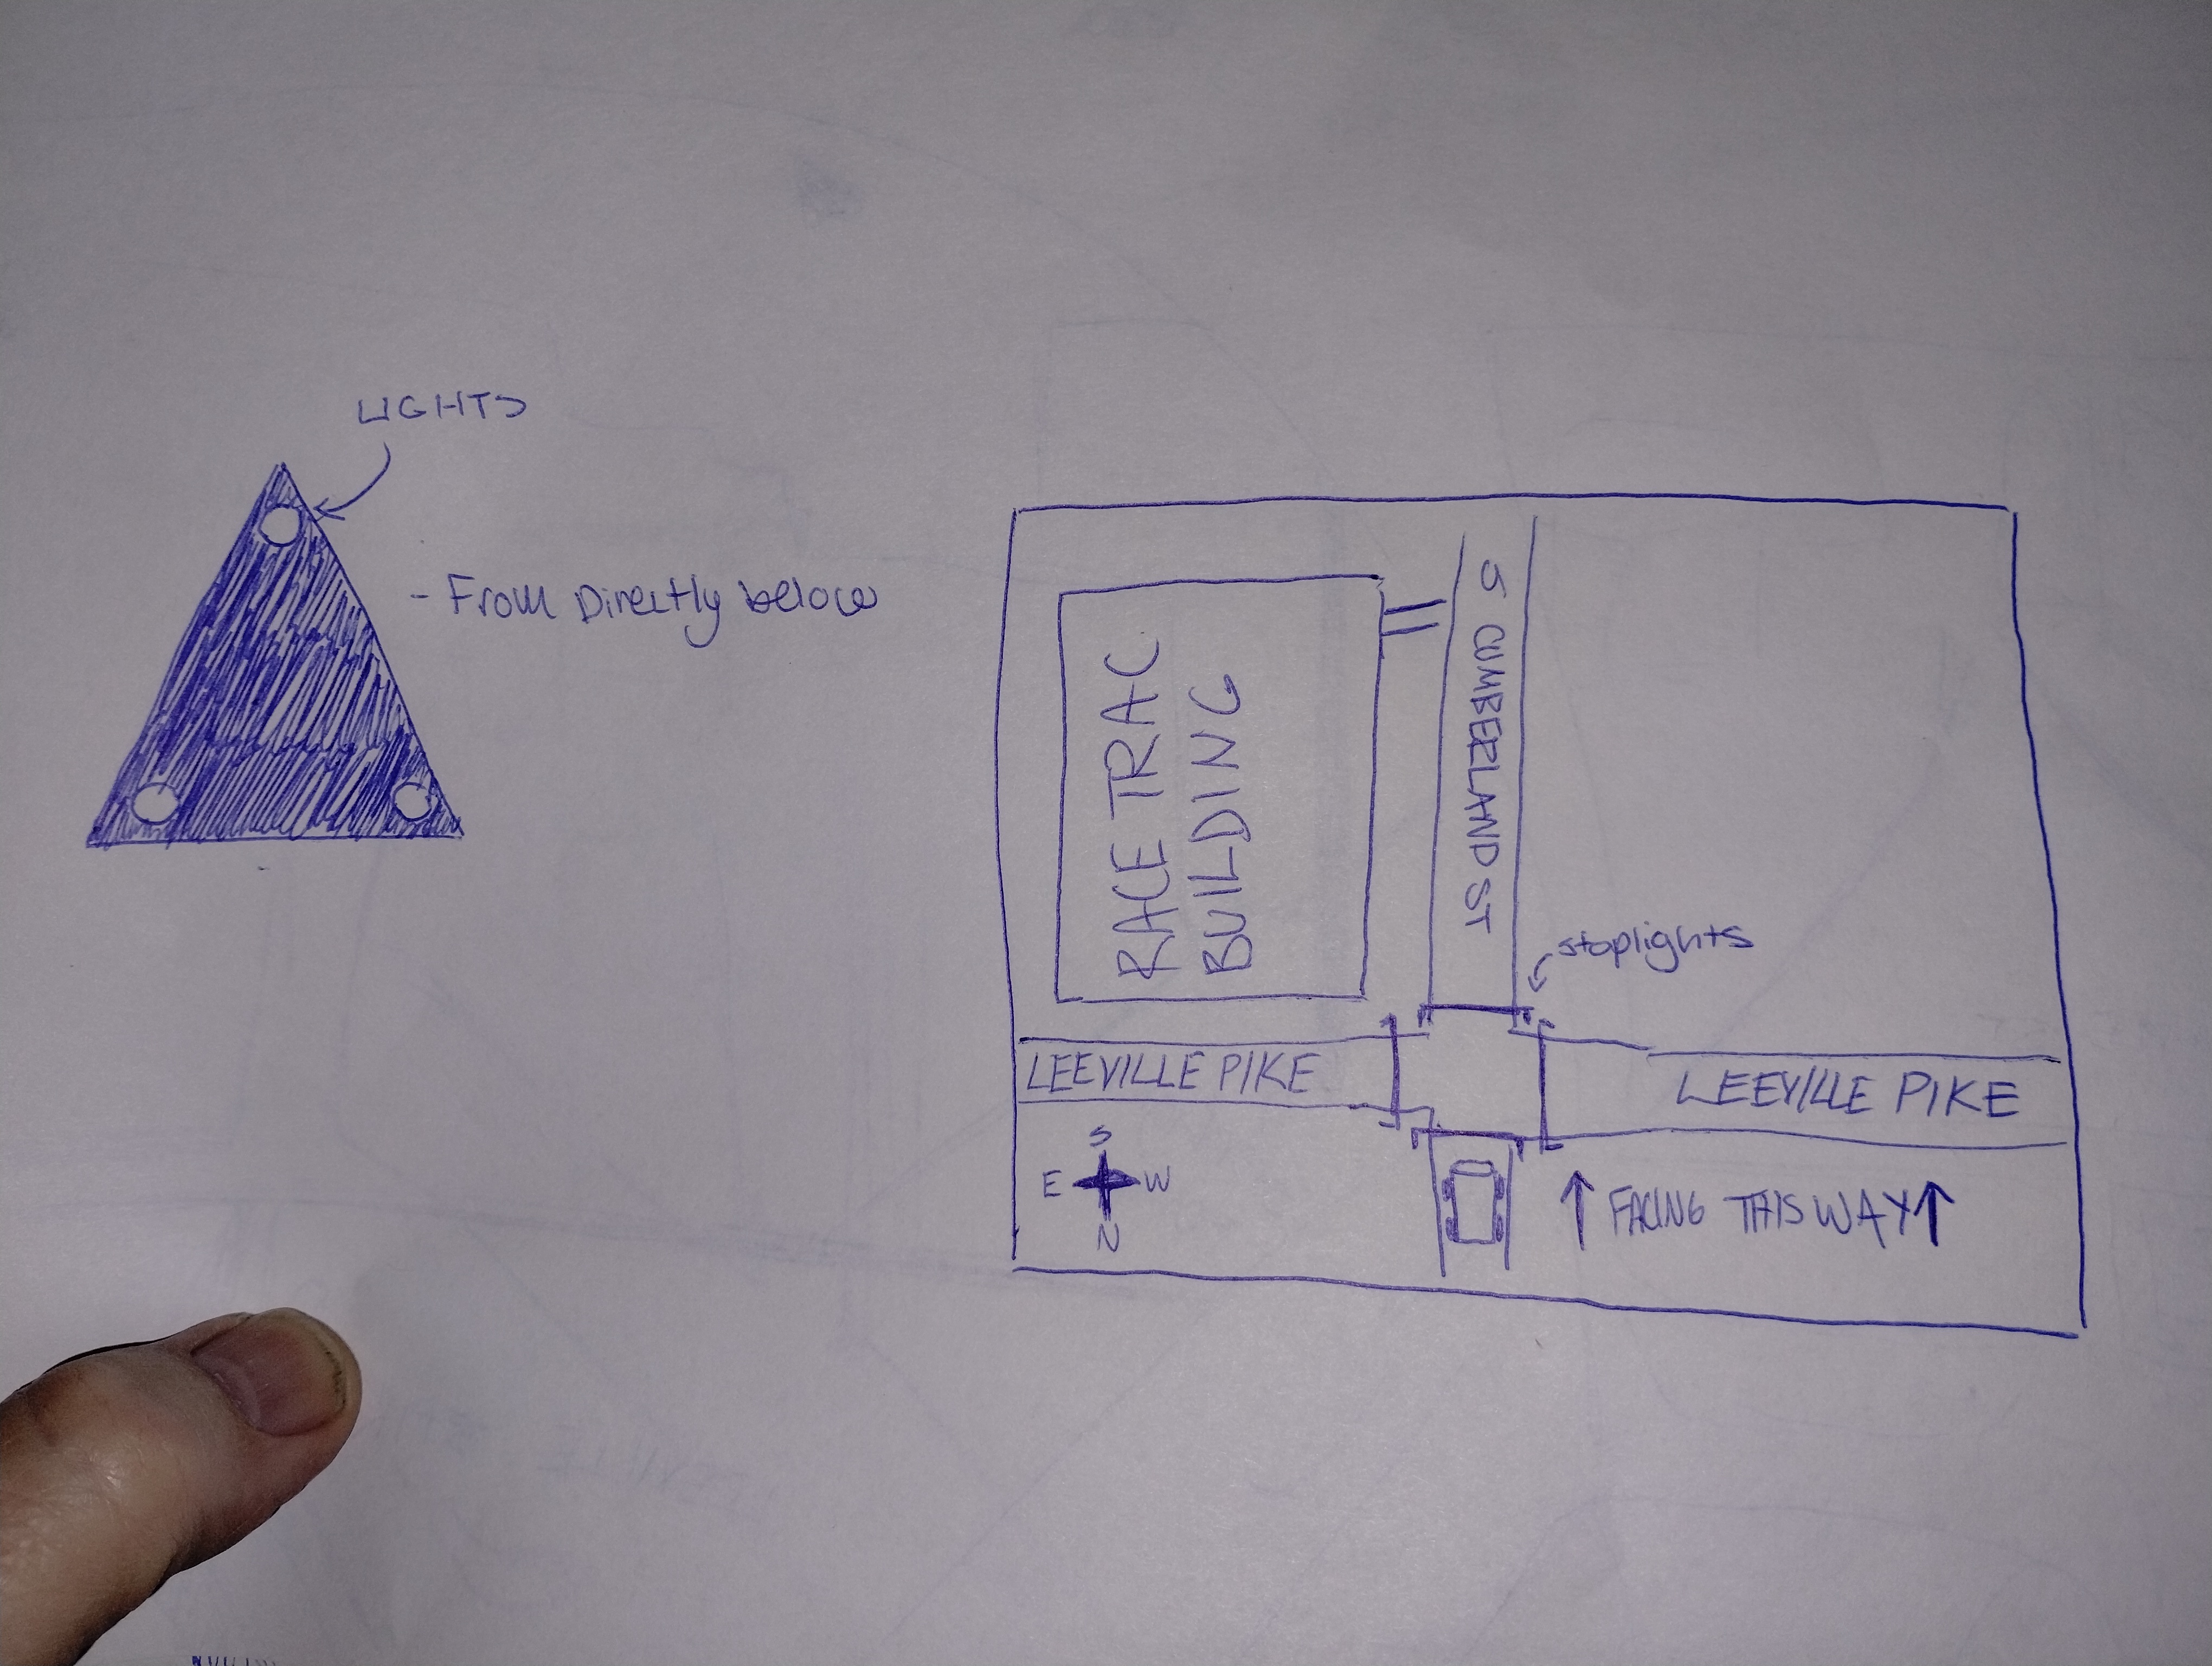 LIGHTS
- From Directly below
RACE TRAC
BUILDING
S CUMBERLAND ST
stoplights
LEEVILLE PIKE
LEEVILLE PIKE
S
E W
N
↑ FACING THIS WAY ↑